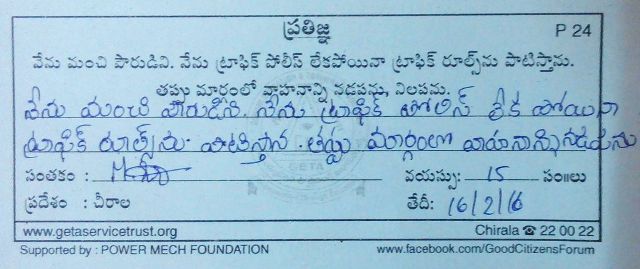 ప్రతిజ్ఞ P 24
నేను మంచి పౌరుడిని. నేను ట్రాఫిక్ పోలీస్ లేకపోయినా ట్రాఫిక్ రూల్స్‌ను పాటిస్తాను.
తప్పు మార్గంలో వాహనాన్ని నడపను, నిలపను.
నేను మంచి పౌరుడిని. నేను ట్రాఫిక్ పోలిస్ లేక పోయినా
ట్రాఫిక్ రూల్స్‌ను. పాటిస్తాన. తప్పు మార్గంలో వాహనాన్ని నడపను
సంతకం : వయస్సు: 15 సం॥లు
ప్రదేశం : చీరాల తేదీ: 16/2/16
www.getaservicetrust.org Chirala ☎ 22 00 22
Supported by : POWER MECH FOUNDATION www.facebook.com/GoodCitizensForum